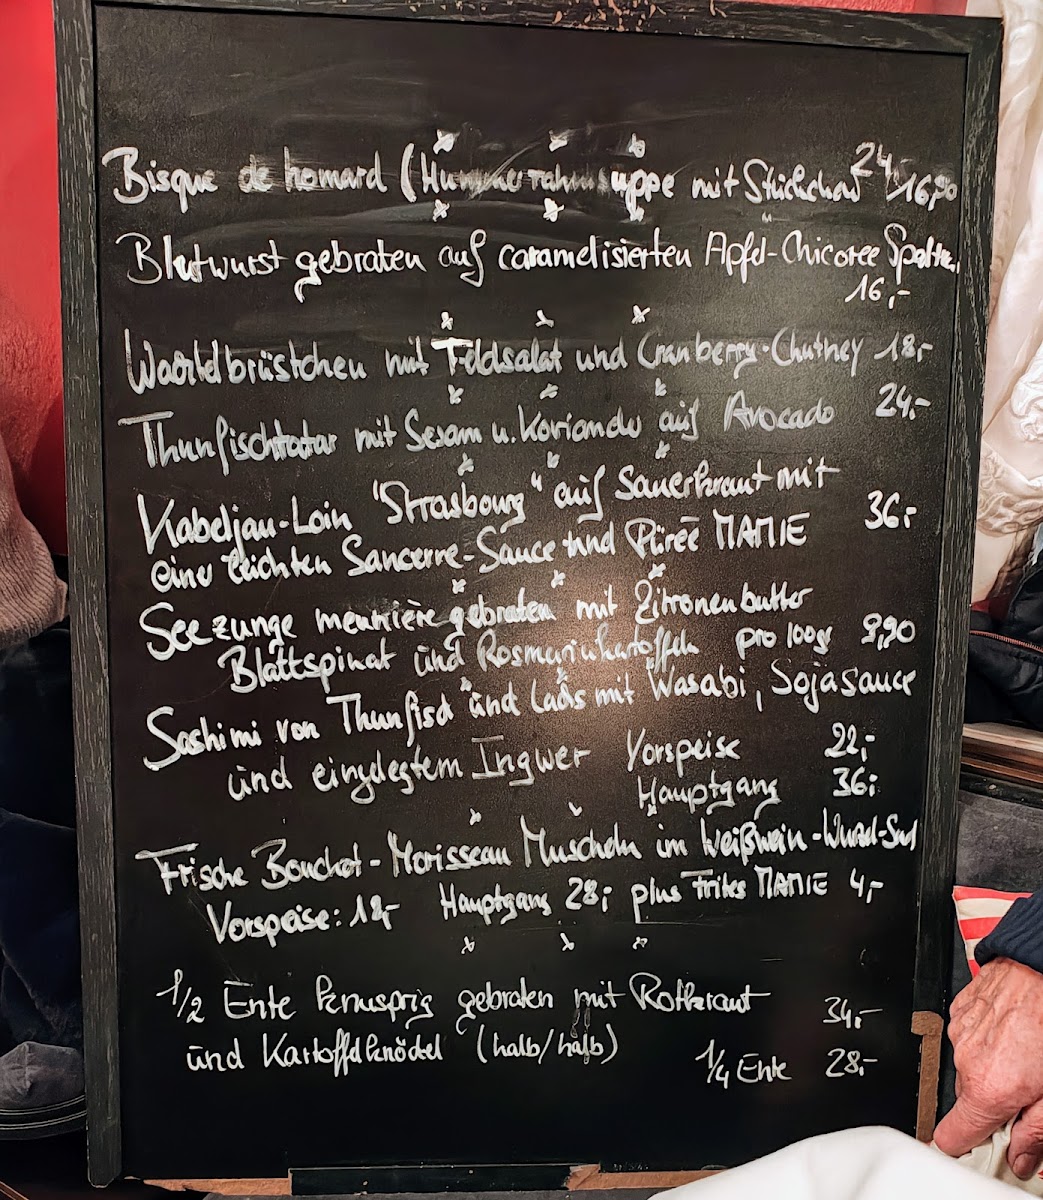 Bisque de homard (Hummerrahmsuppe mit Stückchen 24,- /16,90
Blutwurst gebraten auf caramelisierten Apfel-Chicoree Spalten
16,-
mit Feldsalat und Cranberry-Chutney 18,-
Thunfischtatar mit Sesam u. Koriander auf Avocado 24,-
Kabeljau-Loin "Strasbourg" auf Sauerkraut mit
einer leichten Sancerre-Sauce und Püreé MAMIE 36,-
Seezunge meunière gebraten mit Zitronenbutter
Blattspinat und Rosmarinkartoffeln pro 100g 9,90
Sashimi von Thunfisch und Lachs mit Wasabi, Sojasauce
und eingelegtem Ingwer Vorspeise 22,-
Hauptgang 36,-
Frische Bouchot-Morisseau Muscheln im Weißwein-Wurzel-Sud
Vorspeise: 18,- Hauptgang 28,- plus Frites MAMIE 4,-
1/2 Ente knusprig gebraten mit Rotkraut
und Kartoffelknödel (halb/halb) 34,-
1/4 Ente 28,-